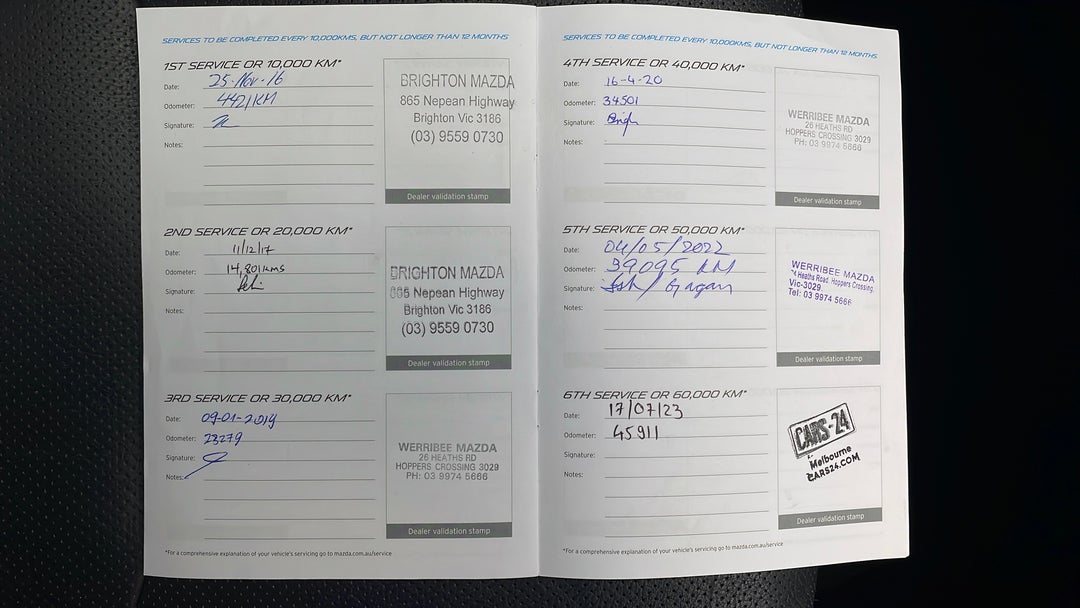 SERVICES TO BE COMPLETED EVERY 10,000KMS, BUT NOT LONGER THAN 12 MONTHS
1ST SERVICE OR 10,000 KM*
Date: 25-Nov-16
Odometer: 4421KM
Signature:
Notes:
BRIGHTON MAZDA
865 Nepean Highway
Brighton Vic 3186
(03) 9559 0730
Dealer validation stamp
2ND SERVICE OR 20,000 KM*
Date: 11/12/17
Odometer: 14,801KMS
Signature:
Notes:
BRIGHTON MAZDA
865 Nepean Highway
Brighton Vic 3186
(03) 9559 0730
Dealer validation stamp
3RD SERVICE OR 30,000 KM*
Date: 09-01-2019
Odometer: 23279
Signature:
Notes:
WERRIBEE MAZDA
26 HEATHS RD
HOPPERS CROSSING 3029
PH: 03 9974 5666
Dealer validation stamp
*For a comprehensive explanation of your vehicle's servicing go to mazda.com.au/service
SERVICES TO BE COMPLETED EVERY 10,000KMS, BUT NOT LONGER THAN 12 MONTHS
4TH SERVICE OR 40,000 KM*
Date: 16-4-20
Odometer: 34501
Signature:
Notes:
WERRIBEE MAZDA
26 HEATHS RD
HOPPERS CROSSING 3029
PH: 03 9974 5666
Dealer validation stamp
5TH SERVICE OR 50,000 KM*
Date: 04/05/2022
Odometer: 39095 KM
Signature: / Gagan
Notes:
WERRIBEE MAZDA
Heaths Road, Hoppers Crossing,
Vic-3029
Tel: 03 9974 5666
Dealer validation stamp
6TH SERVICE OR 60,000 KM*
Date: 17/07/23
Odometer: 45911
Signature:
Notes:
CARS-24
Melbourne
CARS24.COM
Dealer validation stamp
*For a comprehensive explanation of your vehicle's servicing go to mazda.com.au/service